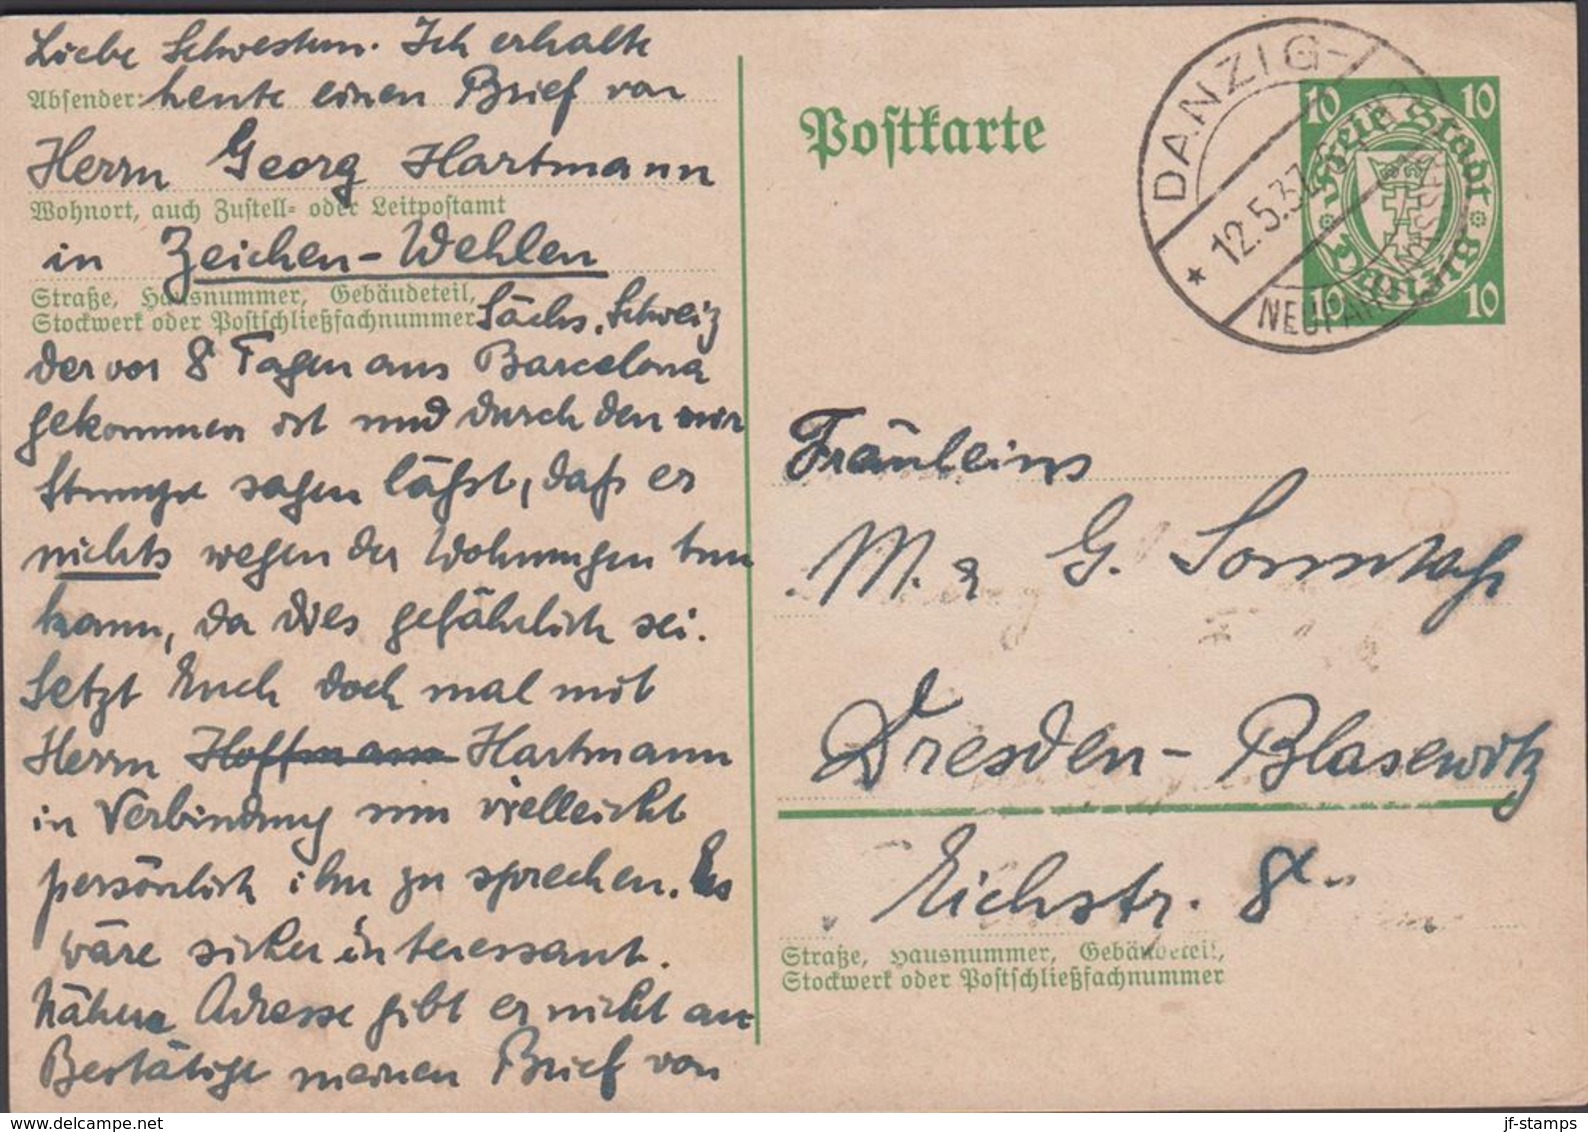 Liebe Schwestern. Ich erhalte
Absender: heute einen Brief von
Herrn Georg Hartmann
Wohnort, auch Zustell- oder Leitpostamt
in Zeichen-Wehlen
Straße, Hausnummer, Gebäudeteil,
Stockwerk oder Postschließfachnummer Sächs. Schweiz
der vor 8 Tagen aus Barcelona
gekommen ist und durch den mir
sagen läßt, daß er
nichts wegen der Wohnungen tun
kann, da dies gefährlich sei.
Setzt Euch doch mal mit
Herrn Hoffmann Hartmann
in Verbindung um vielleicht
persönlich ihn zu sprechen. Es
wäre sicher interessant.
Nähere Adresse gibt er nicht an
Bestätigt meinen Brief von
Postkarte
DANZIG-
12.5.37
NEUFAHRWASSER
10 10
Freie Stadt
Danzig
10 10
Fräuleins
M. & G. Sonntag
Dresden-Blasewitz
Eichstr. 8
Straße, Hausnummer, Gebäudeteil,
Stockwerk oder Postschließfachnummer
jf-stamps